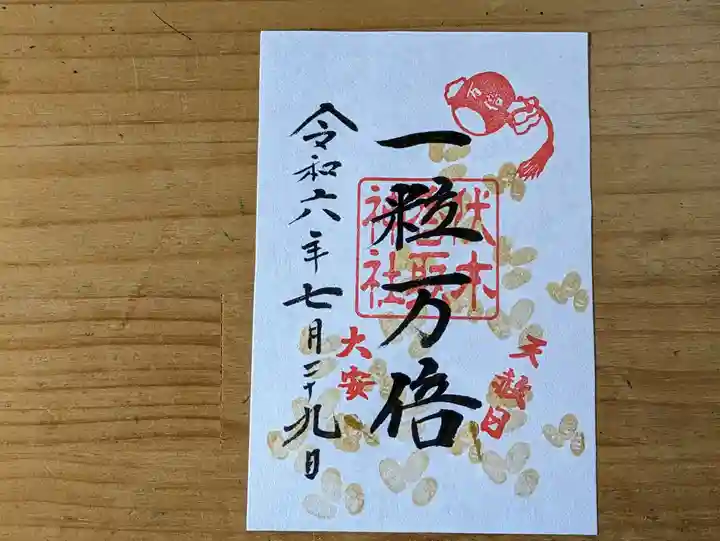 天赦日
一粒万倍
伏木
香取
神社
大安
令和六年七月二十九日